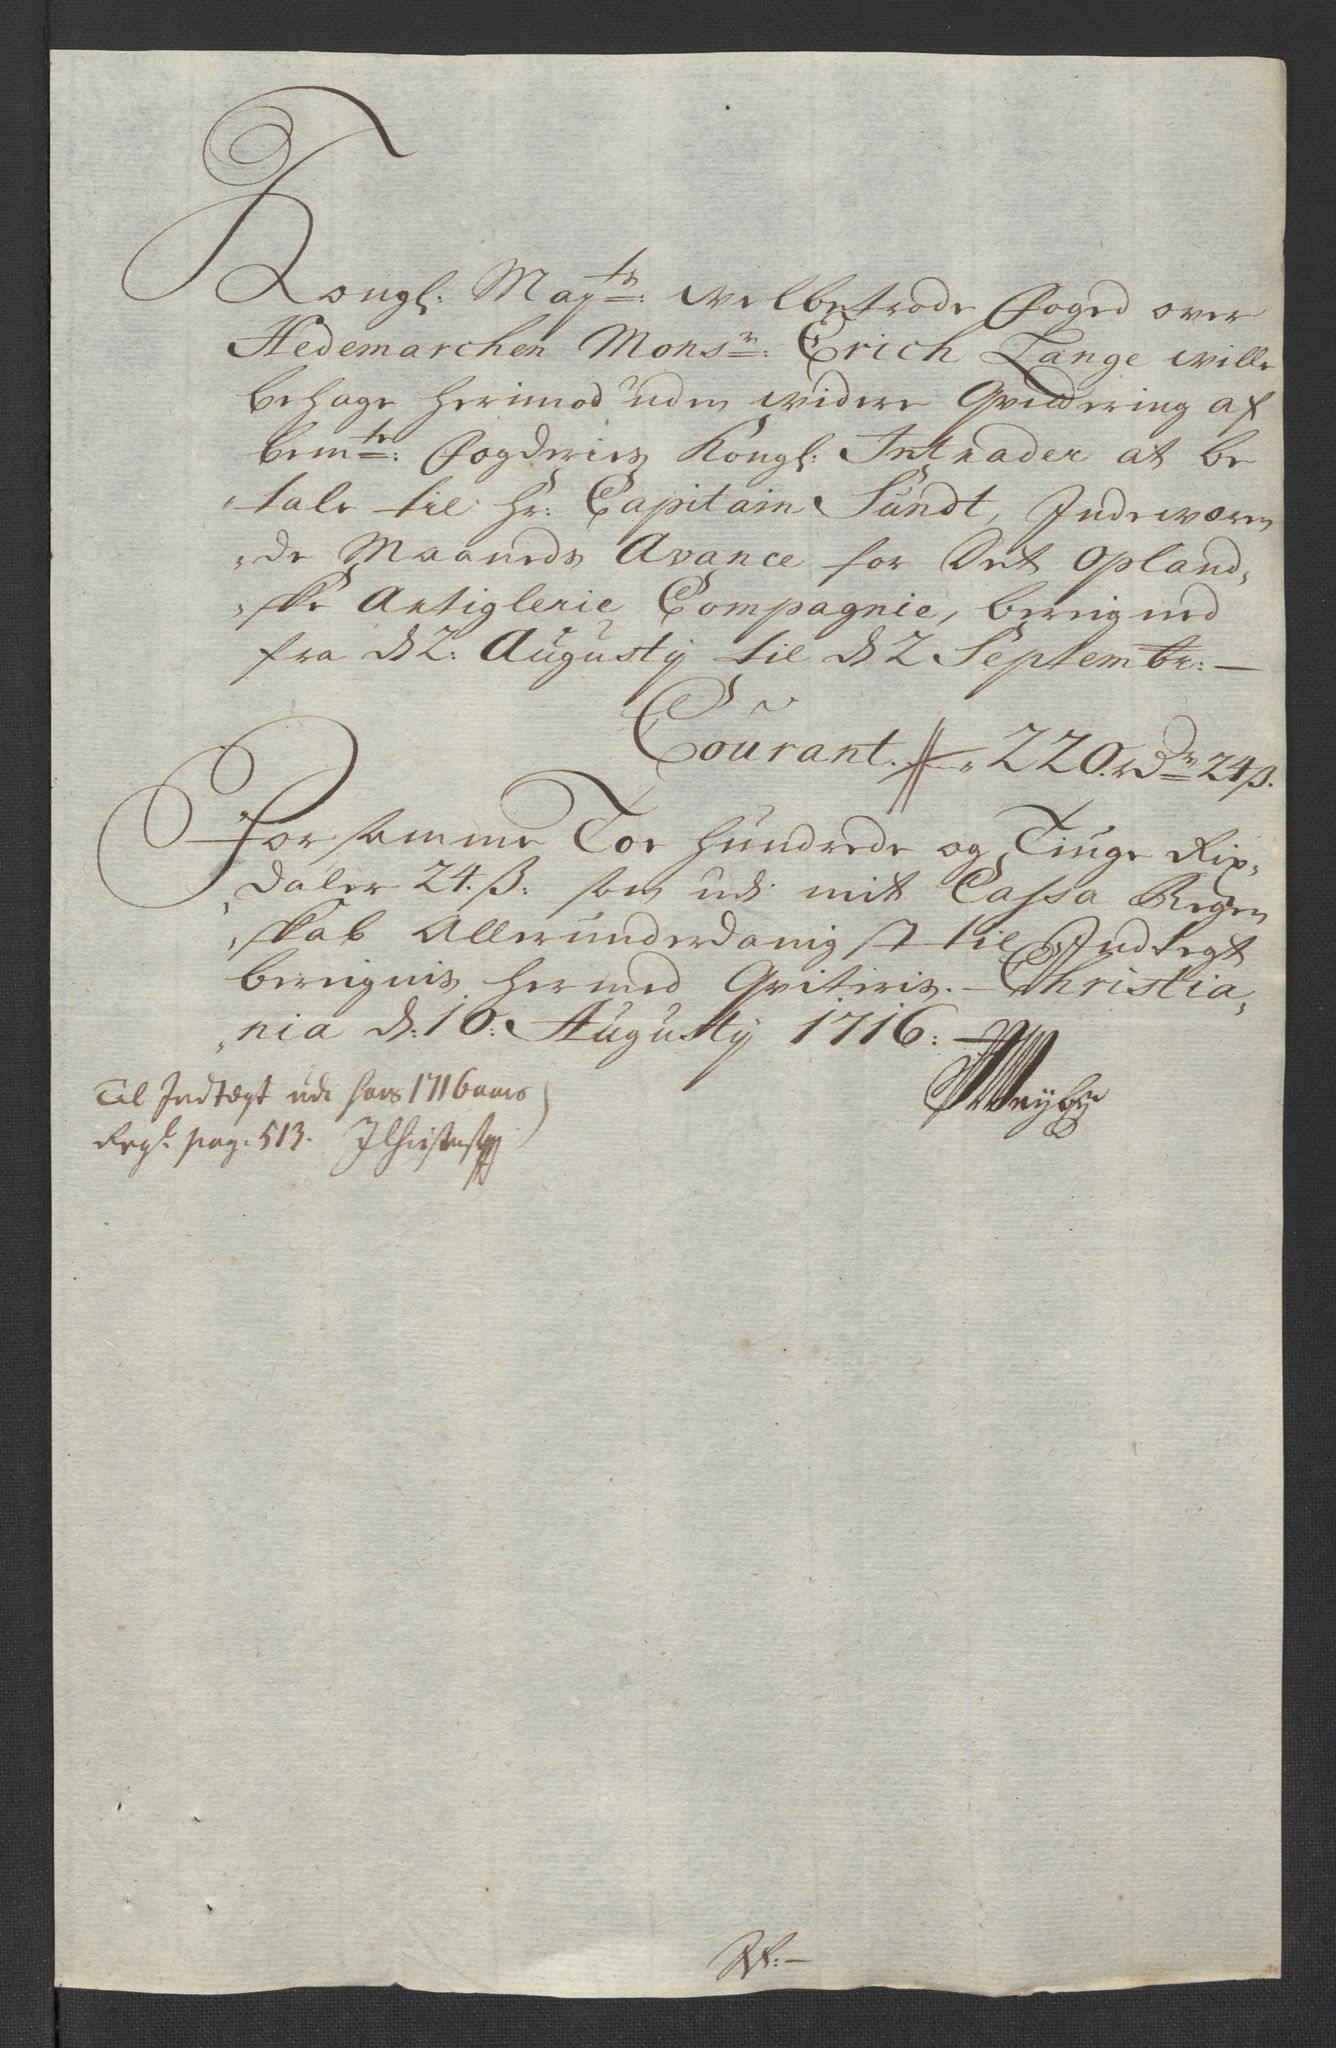 Kongl: Maytz: welbetrode Foged over
Hedemarchen Monsr: Erich Lange wille
behage herimod uden widere Qvidering af
bemte: Fogderies Kongl: Intrader at be
"tale til Hr: Capitain Sundt, Indeværen
"de Maaneds Avance for Det Opland,
"ske Artiglerie Compagnie, bereigned
fra d 2: Augusty til d 2 Septembr: —
Courant 220. rdr 24 ß.
For samme Toe Hundrede og Tiuge Rix,
"daler 24. ß: som udi mit Cassa Regen
"skab Allerunderdanigst til Indtegt
bereignis hermed Qviteris. — Christia,
"nia d: 10: Augusty 1716: —
Til Indtægt udi hans 1716 aars
Regs. pag: 513.